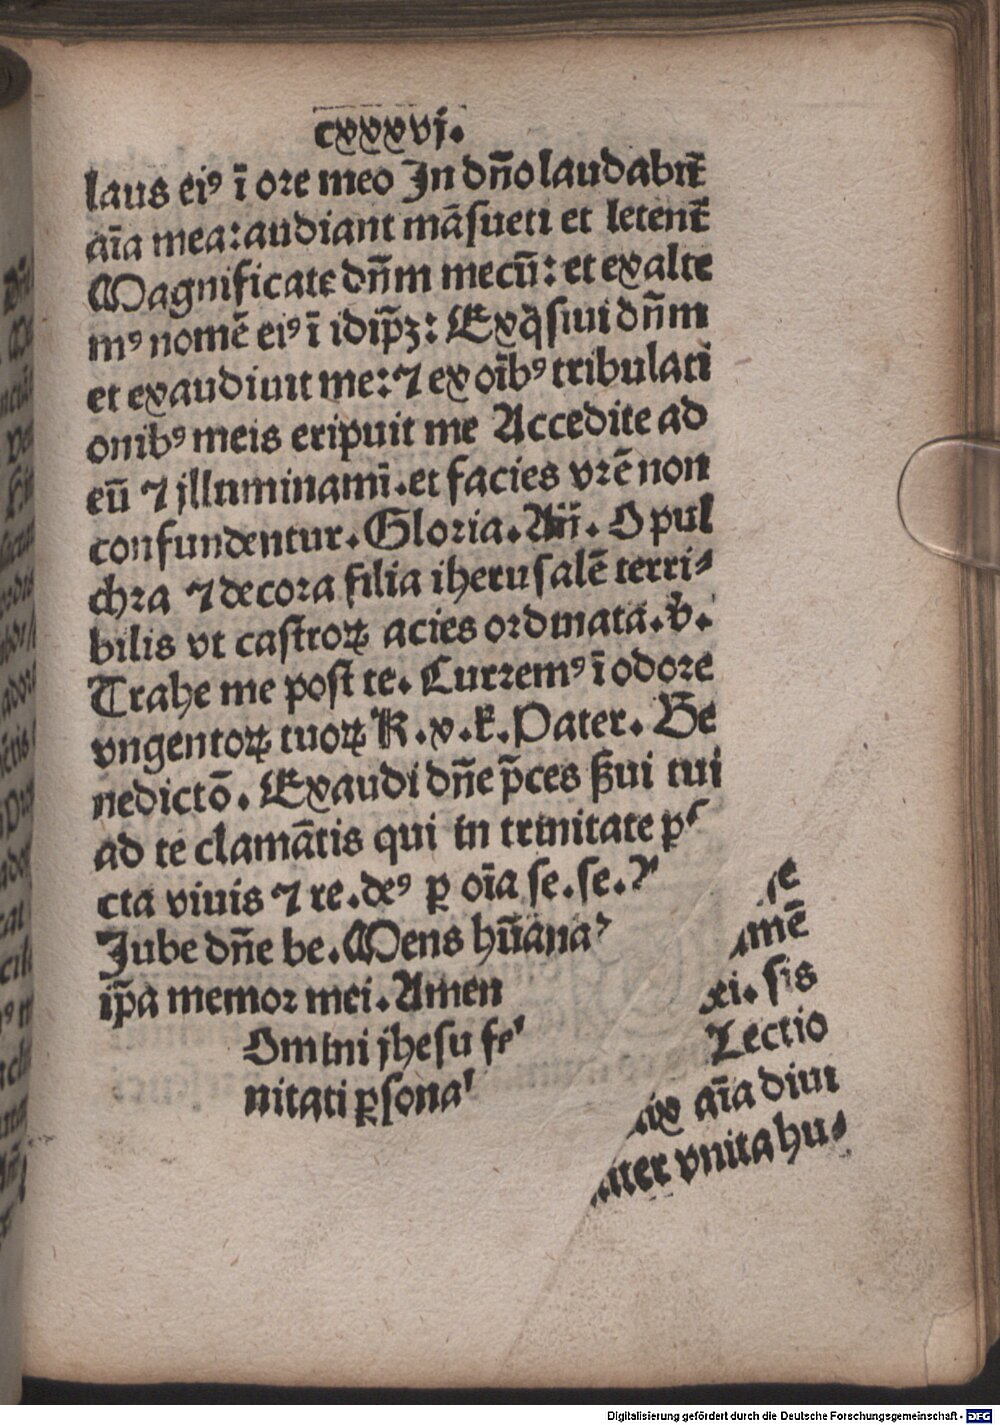 cxxxvj.
laus eiꝰ ī ore meo In dño laudabit̄
aīa mea: audiant māsueti et letent̄
Magnificate dñm mecū: et exalte
mꝰ nomē eiꝰ ī idip̄ꝫ: Exq̄siui dñm
et exaudiuit me: ⁊ ex oībꝰ tribulati
onibꝰ meis eripuit me Accedite ad
eū ⁊ jlluminamī. et facies vrē non
confundentur. Gloria. Añ. O pul
chra ⁊ decora filia iherusalē terri⸗
bilis vt castroꝝ acies ordinata. v̉.
Trahe me post te. Curremꝰ ī odore
vngentoꝝ tuoꝝ K. x. k̄. Pater. Be
nedictō. Exaudi dñe p̄ces ßui tui
ad te clamātis qui in trinitate
cta viuis ⁊ re. deꝰ ꝑ oīa se. se.
Jube dñe be. Mens hūana
ip̄a memor mei. Amen
Omini jhesu
nitati ꝑsona
se
mē
ei. sis
Lectio
ix aīa diui
ter vnita hu⸗
Digitalisierung gefördert durch die Deutsche Forschungsgemeinschaft - DFG